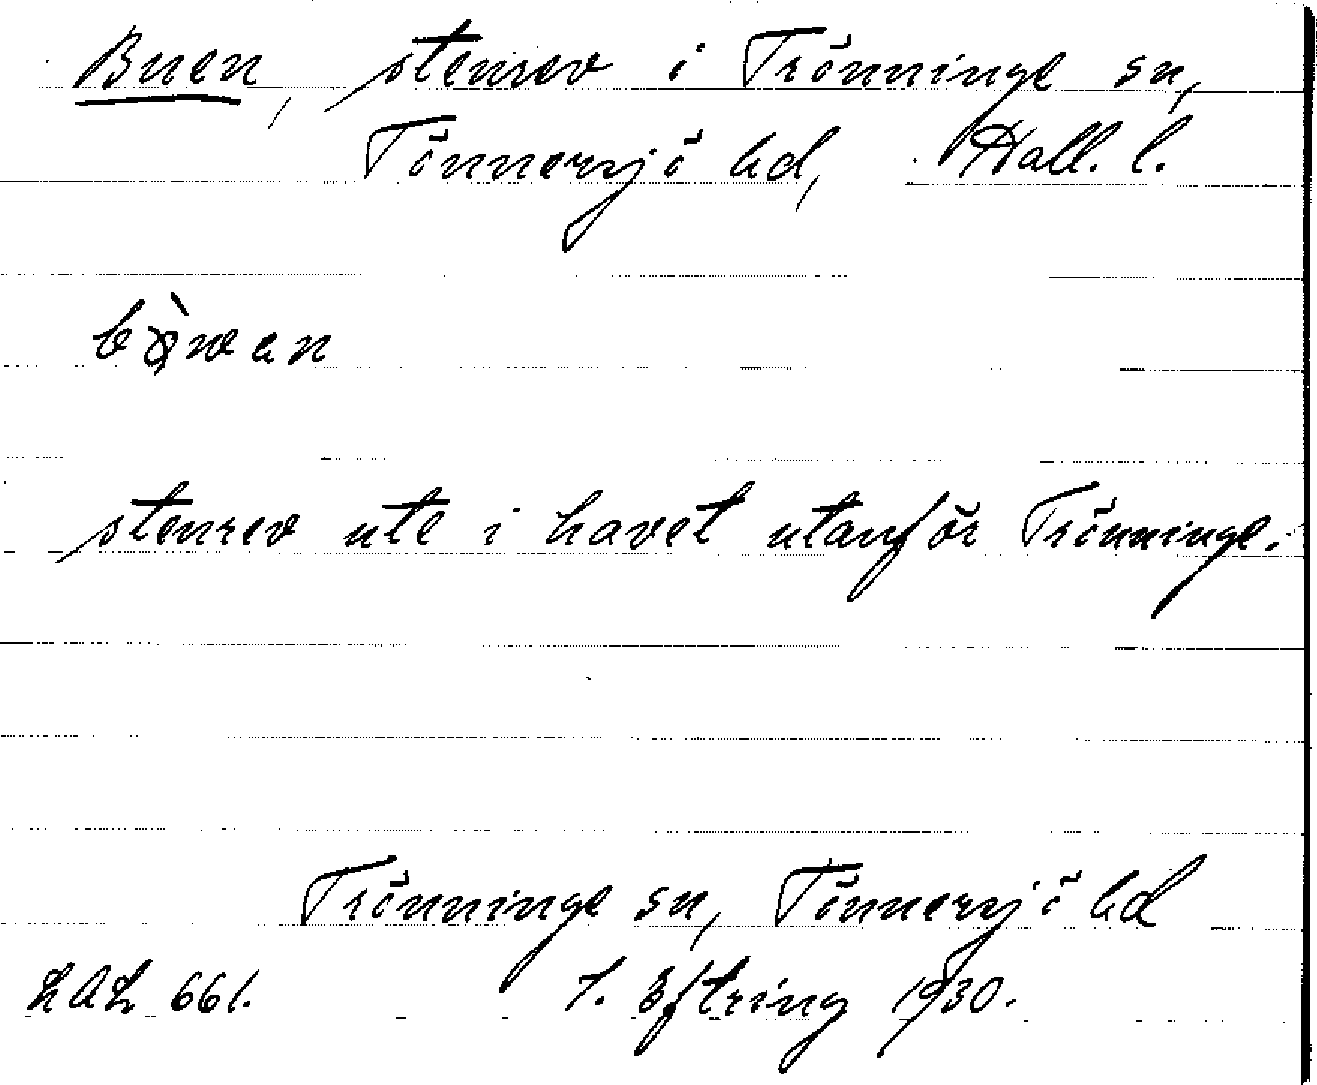 Buen, stenrev i Trönninge sn,
Tönnersjö hd, Hall. l.
stenrev ute i havet utanför Trönninge.
Trönninge sn, Tönnersjö hd
LAL 661. Eftring 1930.